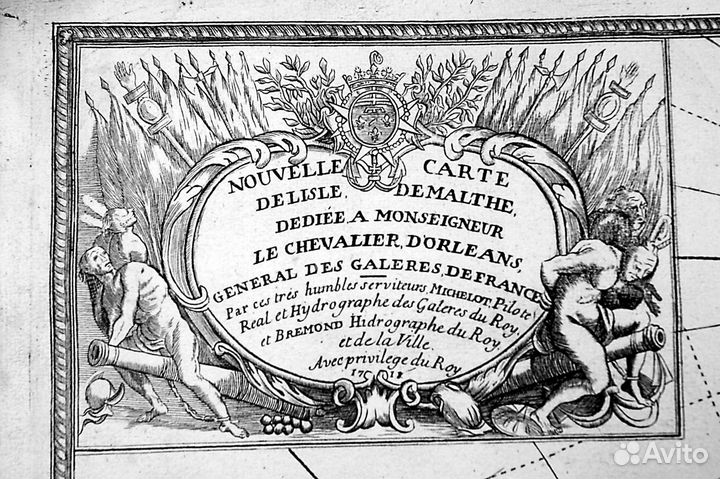 NOUVELLE CARTE
DE LISLE DE MALTHE,
DEDIÉE A MONSEIGNEUR
LE CHEVALIER, D'ORLEANS,
GENERAL DES GALERES, DE FRANCE
Par ces trés humbles serviteurs, MICHELOT, Pilote
Real et Hydrographe des Galeres du Roy,
et BREMOND Hidrographe du Roy,
et de la Ville.
Avec privilege du Roy
17 18
Avito